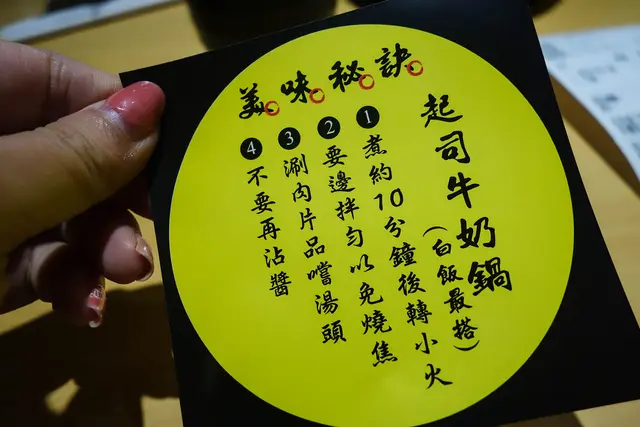 美味秘訣
起司牛奶鍋
（白飯最搭）
1 煮約10分鐘後轉小火
2 要邊拌勻以免燒焦
3 涮肉片品嚐湯頭
4 不要再沾醬